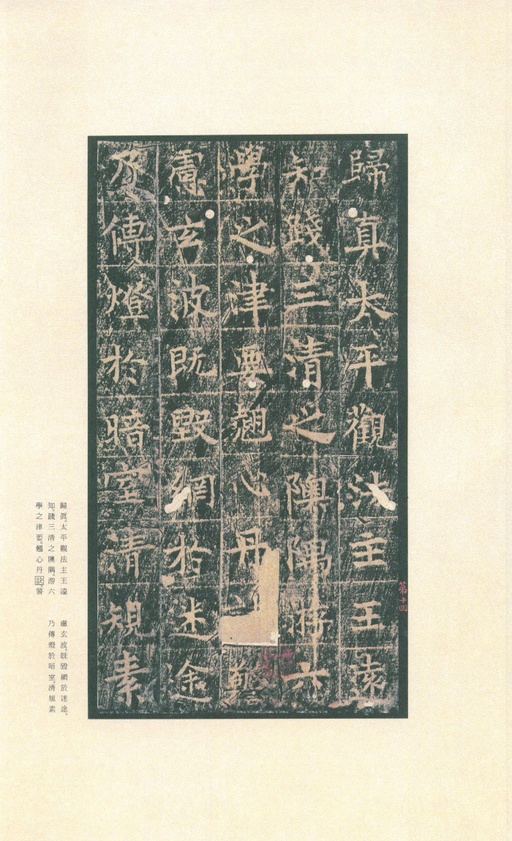 歸真太平觀法主王遠
知踐三清之隩隅游六
學之津要翹心丹
慮玄波既毀網於迷途
乃傳燈於暗室清規素
第十四
歸真，太平觀法主王遠
知，踐三清之隩隅，游六
學之津要，翹心丹
慮玄波，既毀網於迷途，
乃傳燈於暗室，清規素